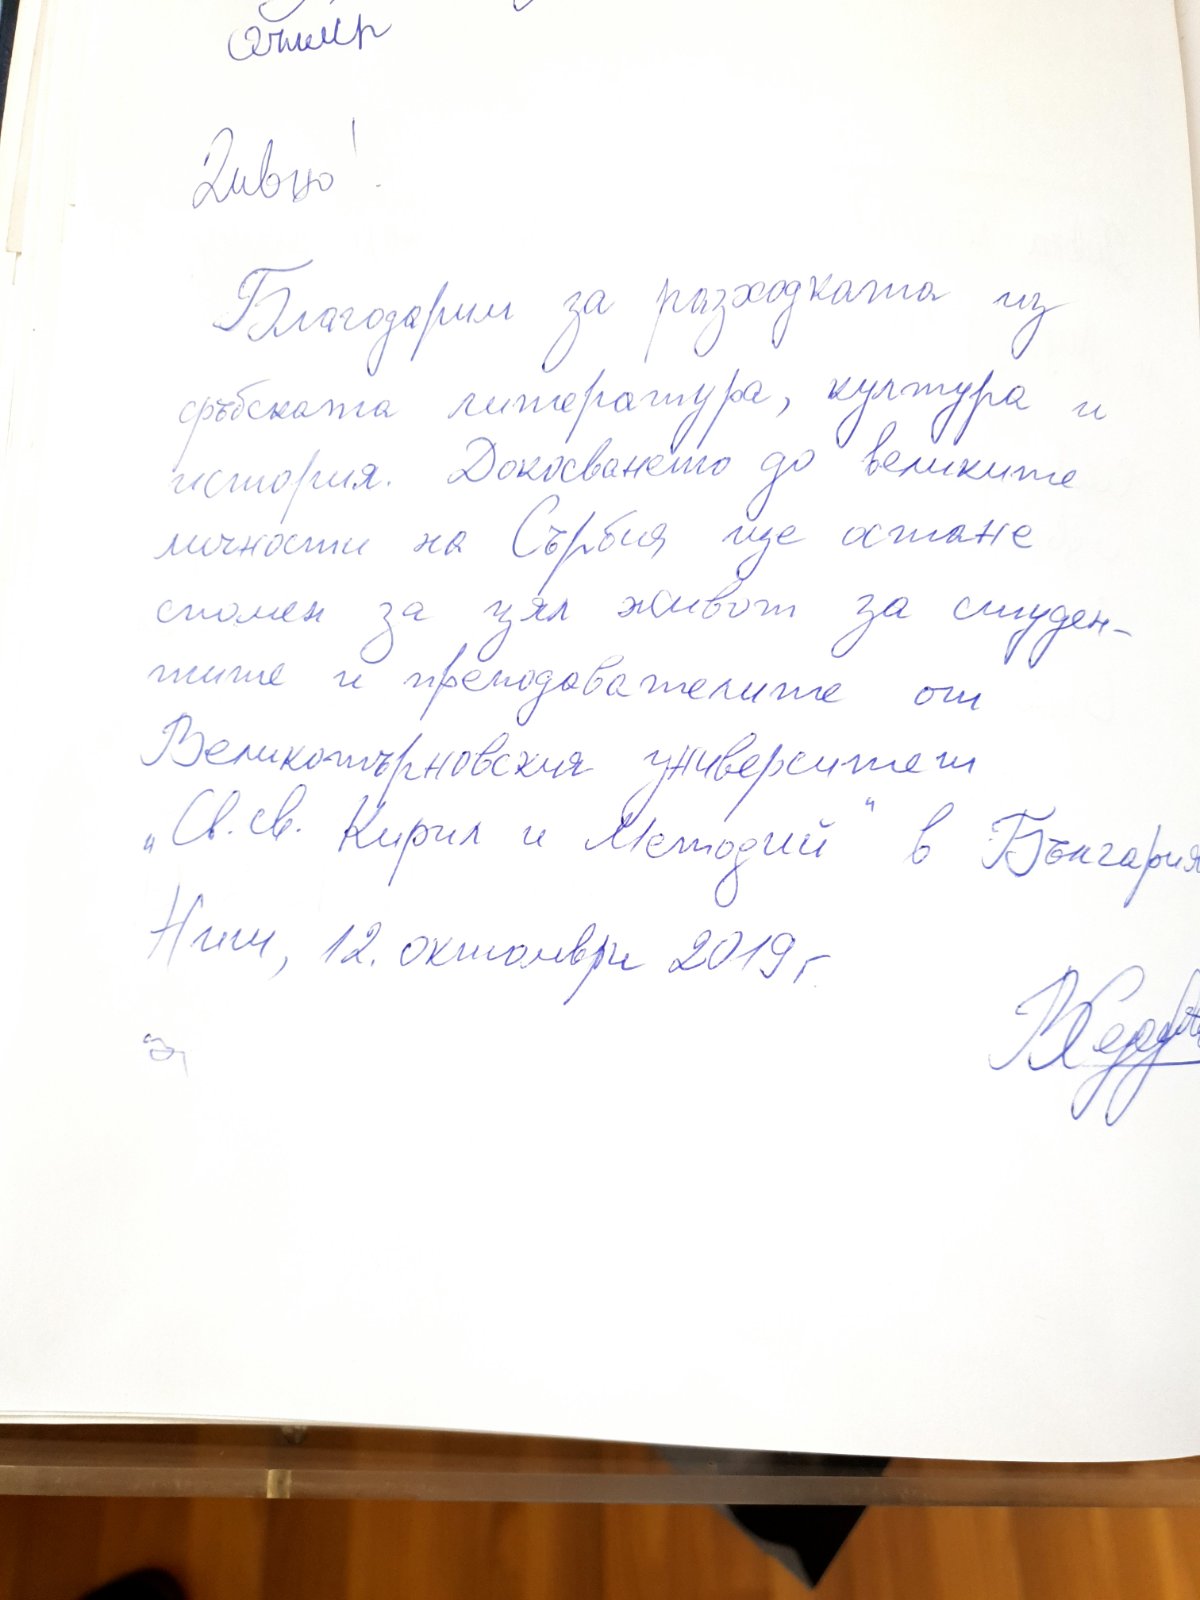 Благодарим за разходката из
сръбската литература, култура и
история. Докосването до великите
личности на Сърбия ще остане
спомен за цял живот за студен-
тите и преподавателите от
Великотърновския университет
„Св. св. Кирил и Методий“ в България
Ниш, 12. октомври 2019 г.